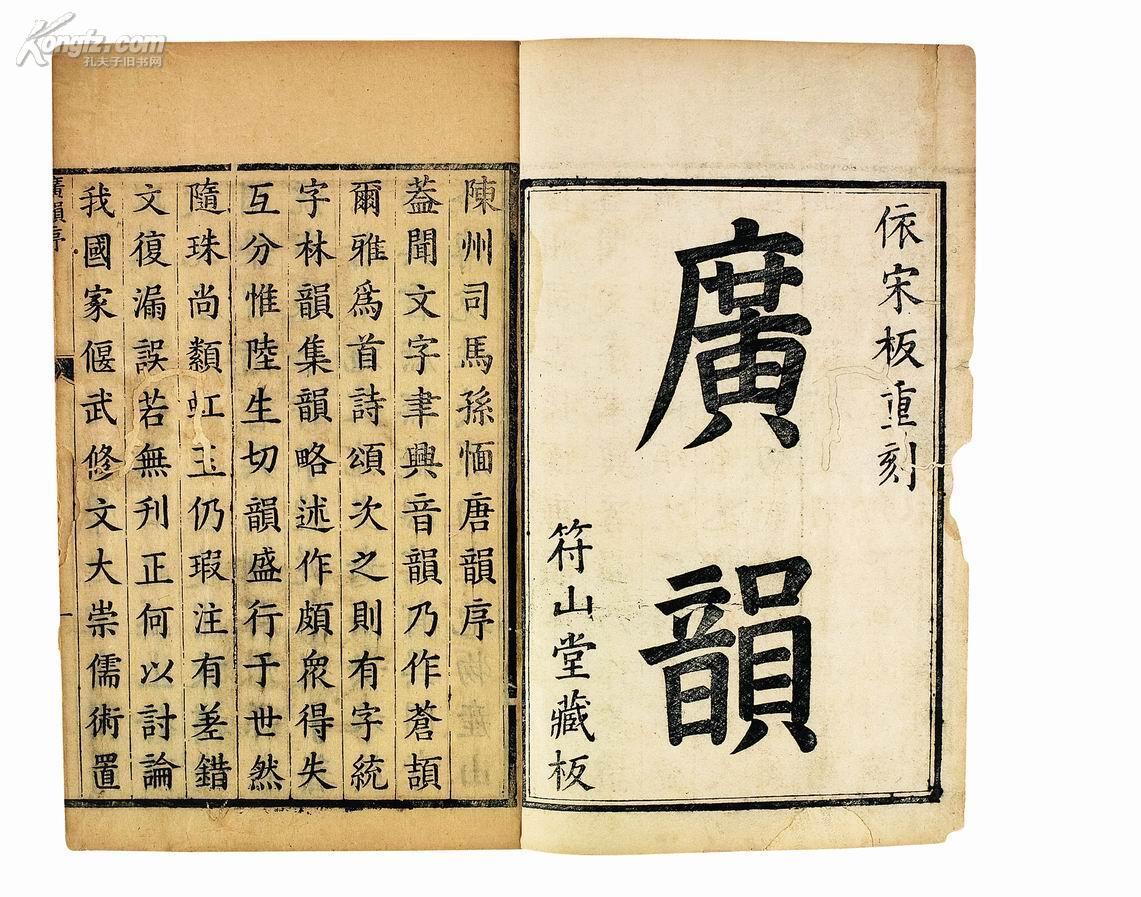 依宋板重刻
廣韻
符山堂藏板
陳州司馬孫愐唐韻序
蓋聞文字聿興音韻乃作蒼頡
爾雅爲首詩頌次之則有字統
字林韻集韻略述作頗衆得失
互分惟陸生切韻盛行于世然
隨珠尚纇虹玉仍瑕注有差錯
文復漏誤若無刊正何以討論
我國家偃武修文大崇儒術置
廣韻序
一
Kongfz.com
孔夫子旧书网